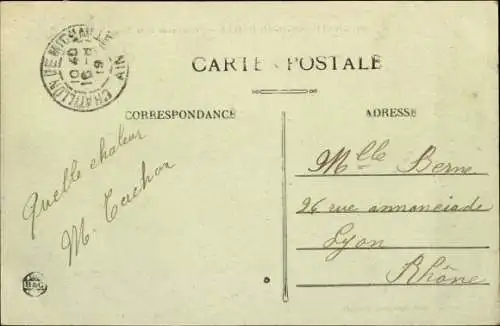 CHATILLON DE MICHAILLE
10 40
16 - 8
19
AIN
CARTE POSTALE
CORRESPONDANCE
ADRESSE
Quelle chaleur
M.
Mlle Berne
26 rue annonciade
Lyon
Rhône
B&G